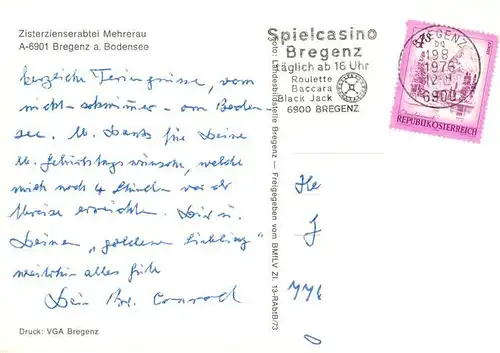 Zisterzienserabtei Mehrerau
A-6901 Bregenz a. Bodensee
herzliche Feriengrüsse, vom
nicht-schwimmer - am Boden-
see. U. Danks für Deine
lb. Geburtstagswünsche, welche
mich noch 4 Stunden vor der
Abreise erreichten. Dir u.
Deinem "goldenen Liebling"
weiterhin alles Gute
Dein Br. Conrad
Druck: VGA Bregenz
Foto: Landesbildstelle Bregenz — Freigegeben vom BMfLV Zl. 13-RAbtB/73
Spielcasino
Bregenz
täglich ab 16 Uhr
Roulette
Baccara
Black Jack
6900 BREGENZ
BREGENZ
1976
6900
REPUBLIK ÖSTERREICH